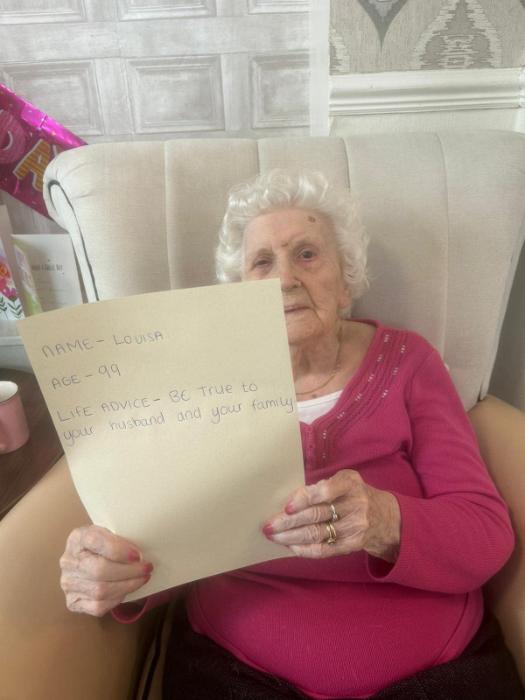 NAME - LOUISA
AGE - 99
LIFE ADVICE - BE True to
your husband and your family